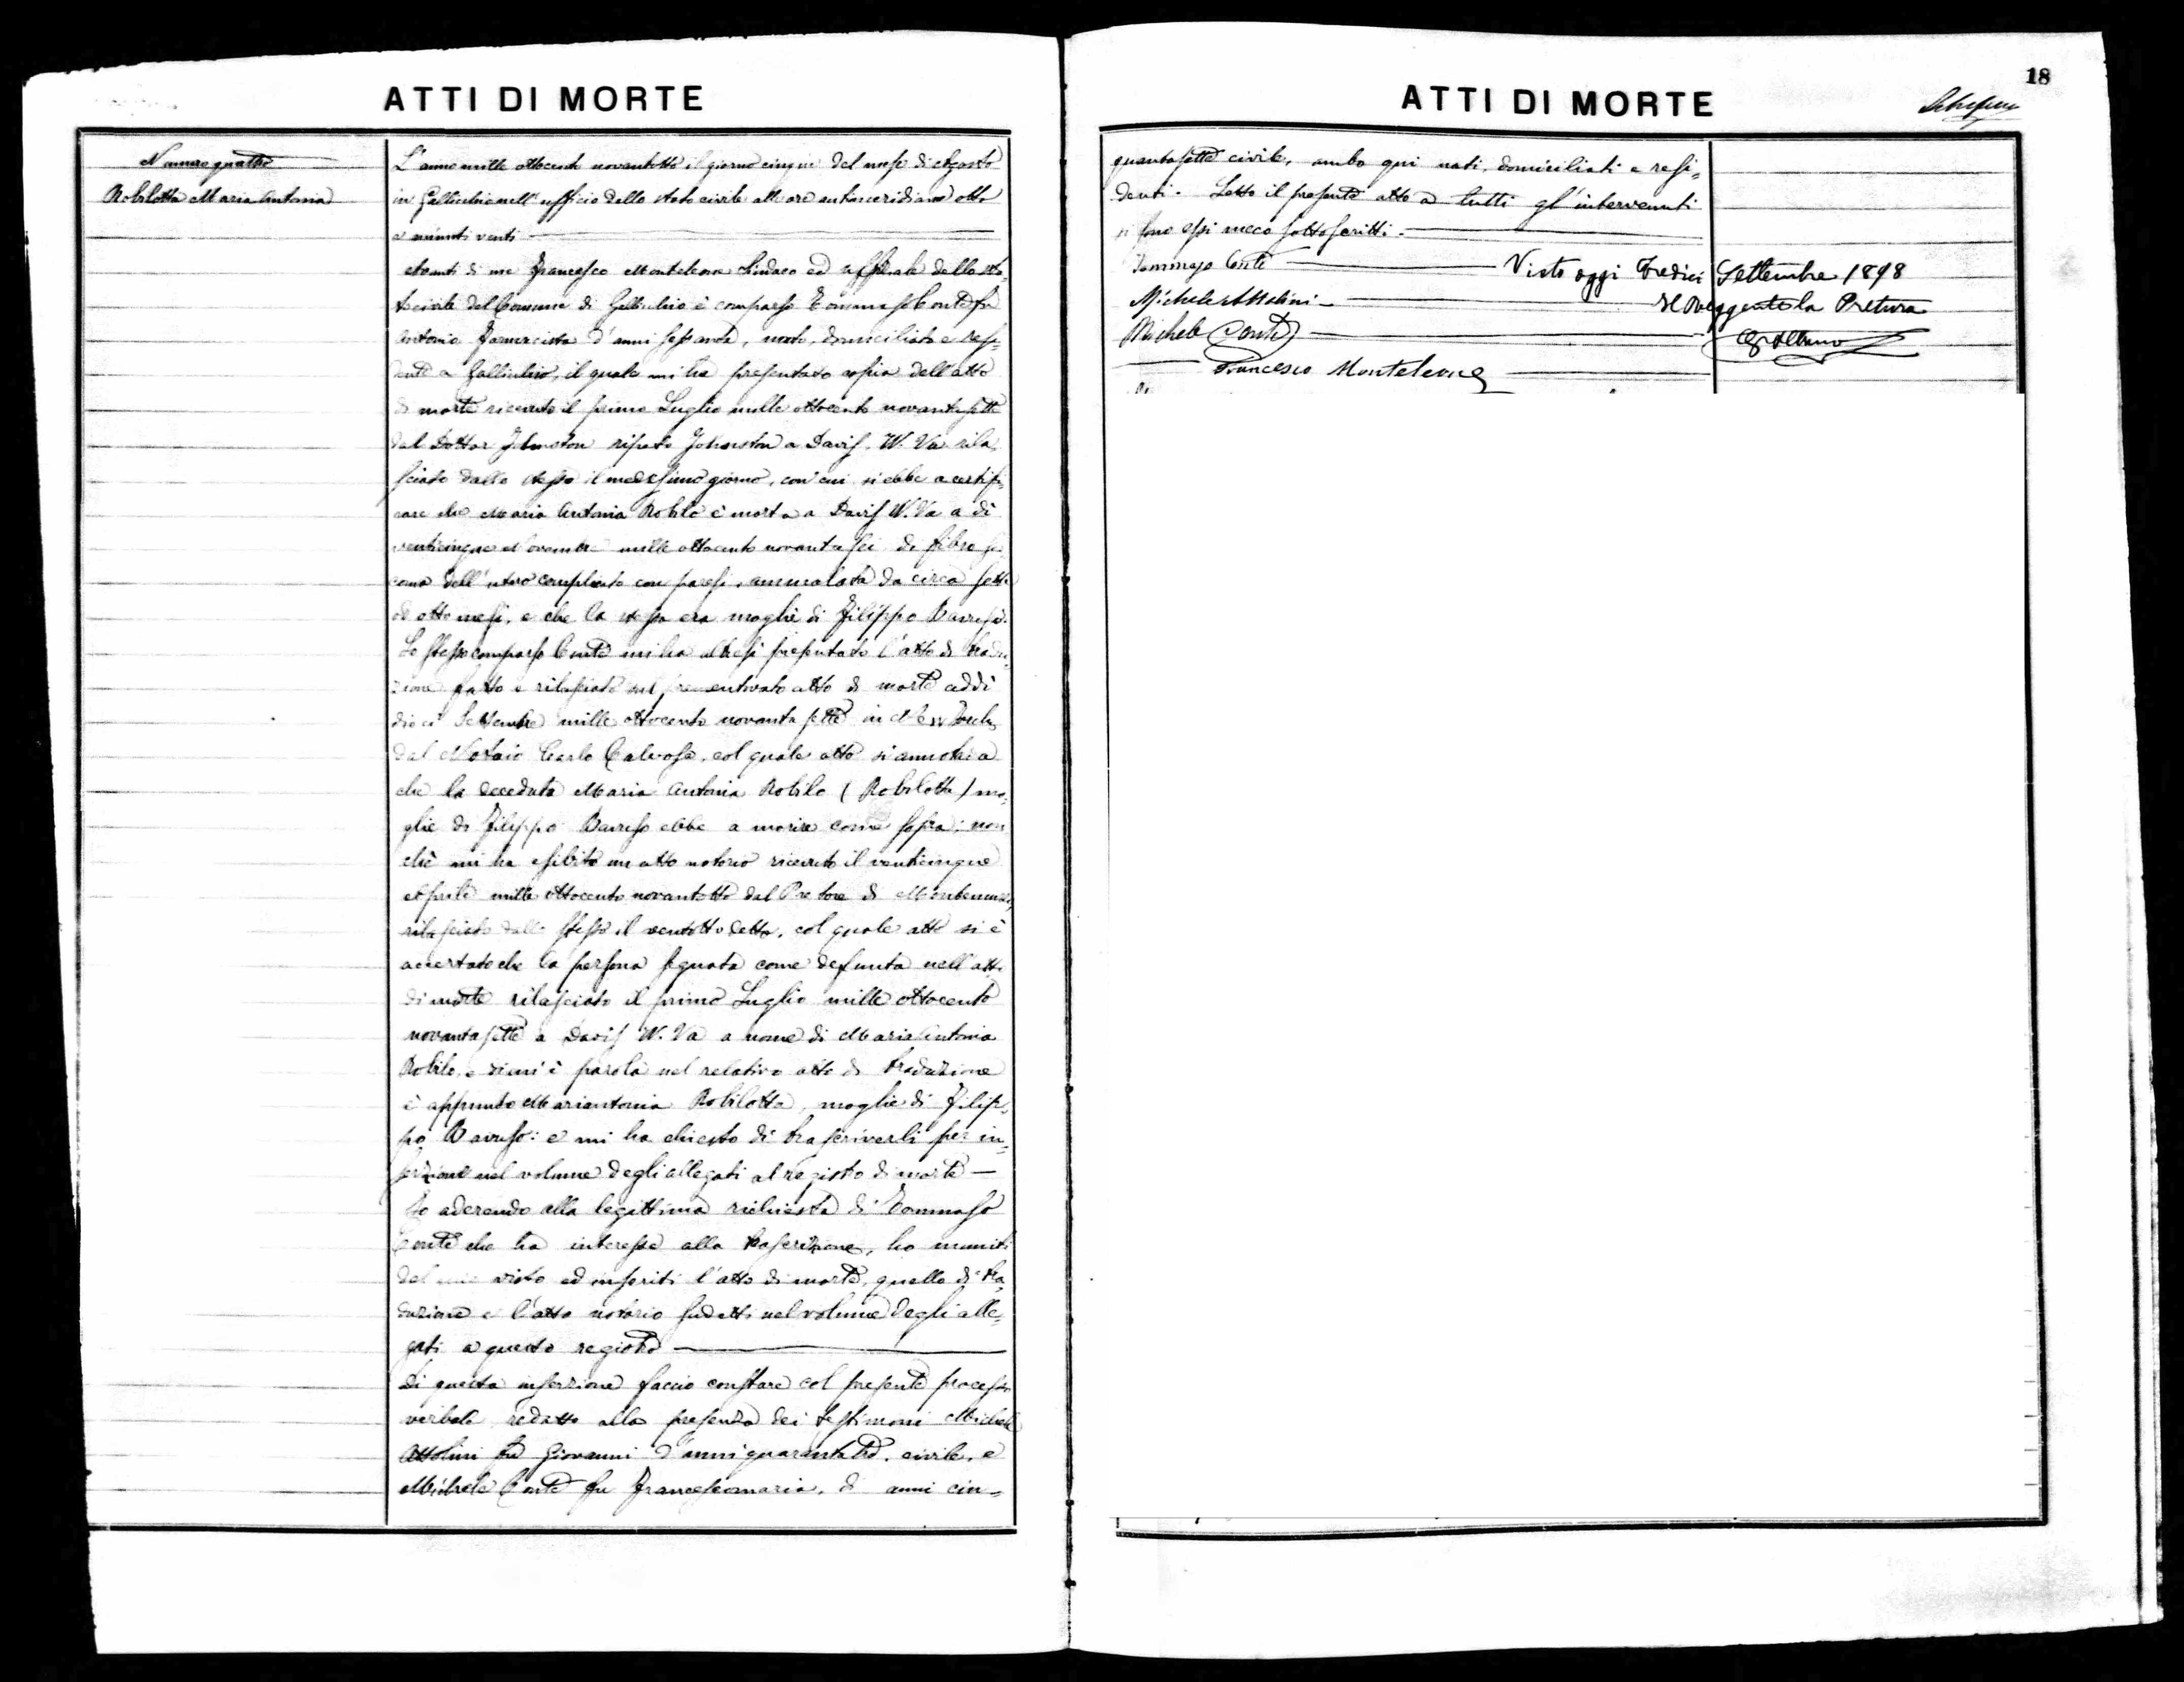 ATTI DI MORTE
Numero quattro
Robilotta Maria Antonia
L'anno mille ottocento novantotto il giorno cinque del mese di Agosto
in Gallicchio nell'ufficio dello stato civile alle ore antimeridiane otto
e minuti venti
Avanti di me Francesco Monteleone Sindaco ed uffiziale dello sta
to civile del Comune di Gallicchio è comparso Tommaso Conte fu
Antonio farmacista d'anni sessanta, nato, domiciliato e resi-
dente a Gallicchio, il quale mi ha presentato copia dell'atto
di morte ricevuto il primo Luglio mille ottocento novantasette
dal Dottor Johnston ripeto Johnston a Davis. W. Va rila
sciato dallo stesso il medesimo giorno, con cui si ebbe a certifi-
care che Maria Antonia Robilo è morta a Davis W. Va a dì
venticinque Novembre mille ottocento novantasei di fibro
dell'utero complicato con paresi, ammalata da circa sette
od otto mesi, e che la stessa era moglie di Filippo Barruso.
Lo stesso comparso Conte mi ha altresì presentato l'atto di tradu-
zione fatto e rilasciato sul prementovato atto di morte addì
dieci Settembre mille ottocento novanta sette in New York
dal Notaio Carlo Calvosa, col quale atto si
che la deceduta Maria Antonia Robilo (Robilotta) mo-
glie di Filippo Barruso ebbe a morire come sopra: non
chè mi ha esibito un atto notorio ricevuto il venticinque
Aprile mille ottocento novantotto dal Pretore di Montemurro,
rilasciato dallo stesso il ventotto detto, col quale atto si è
accertato che la persona segnata come defunta nell'atto
di morte rilasciato il primo Luglio mille ottocento
novantasette a Davis W. Va a nome di Maria Antonia
Robilo, e di cui è parola nel relativo atto di traduzione
è appunto Mariantonia Robilotta, moglie di Filip-
po Barruso: e mi ha chiesto di trascriverli per in-
serzione nel volume degli allegati al registro di morte —
Io aderendo alla legittima richiesta di Tommaso
Conte che ha interesse alla trascrizione, ho muniti
del mio visto ed inseriti l'atto di morte, quello di tra-
duzione e l'atto notorio sudetti nel volume degli alle-
gati a questo registro
Di questa inserzione faccio constare col presente processo
verbale redatto alla presenza dei testimoni Michele
Attolini fu Giovanni d'anni quarantatre, civile, e
Michele Conte fu Francescomaria, di anni cin-
18
ATTI DI MORTE
quantasette civile, ambo qui nati, domiciliati e resi-
denti. Letto il presente atto a tutti gl'intervenuti
si sono essi meco sottoscritti.
Tommaso Conte
Visto oggi Tredici Settembre 1898
Michele Attolini
Il Reggente la Pretura
Michele Conte
Francesco Monteleone